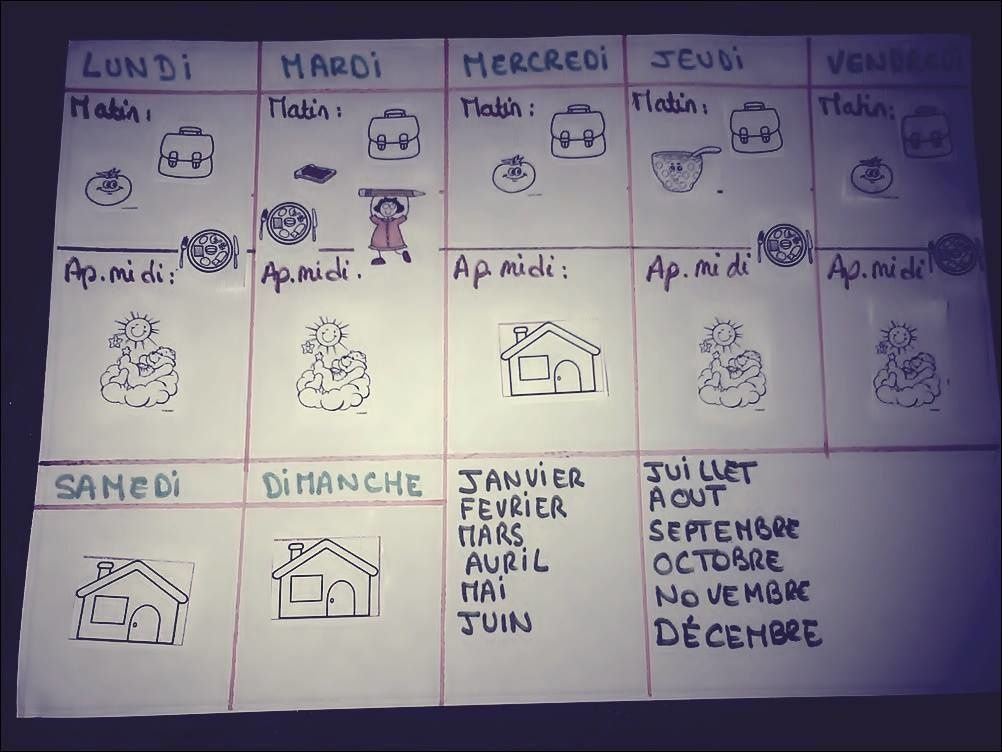 LUNDi MARDi MERCREDi JEUDi VENDREDi
Matin: Matin: Matin: Matin: Matin:
Ap.midi: Ap.midi. Ap.midi: Ap.midi Ap.midi
SAMEDi DiMANCHE
JANVIER
FEVRIER
MARS
AVRiL
MAi
JUIN
JUiLLET
AOUT
SEPTEMBRE
OCTOBRE
NOVEMBRE
DÉCEMBRE